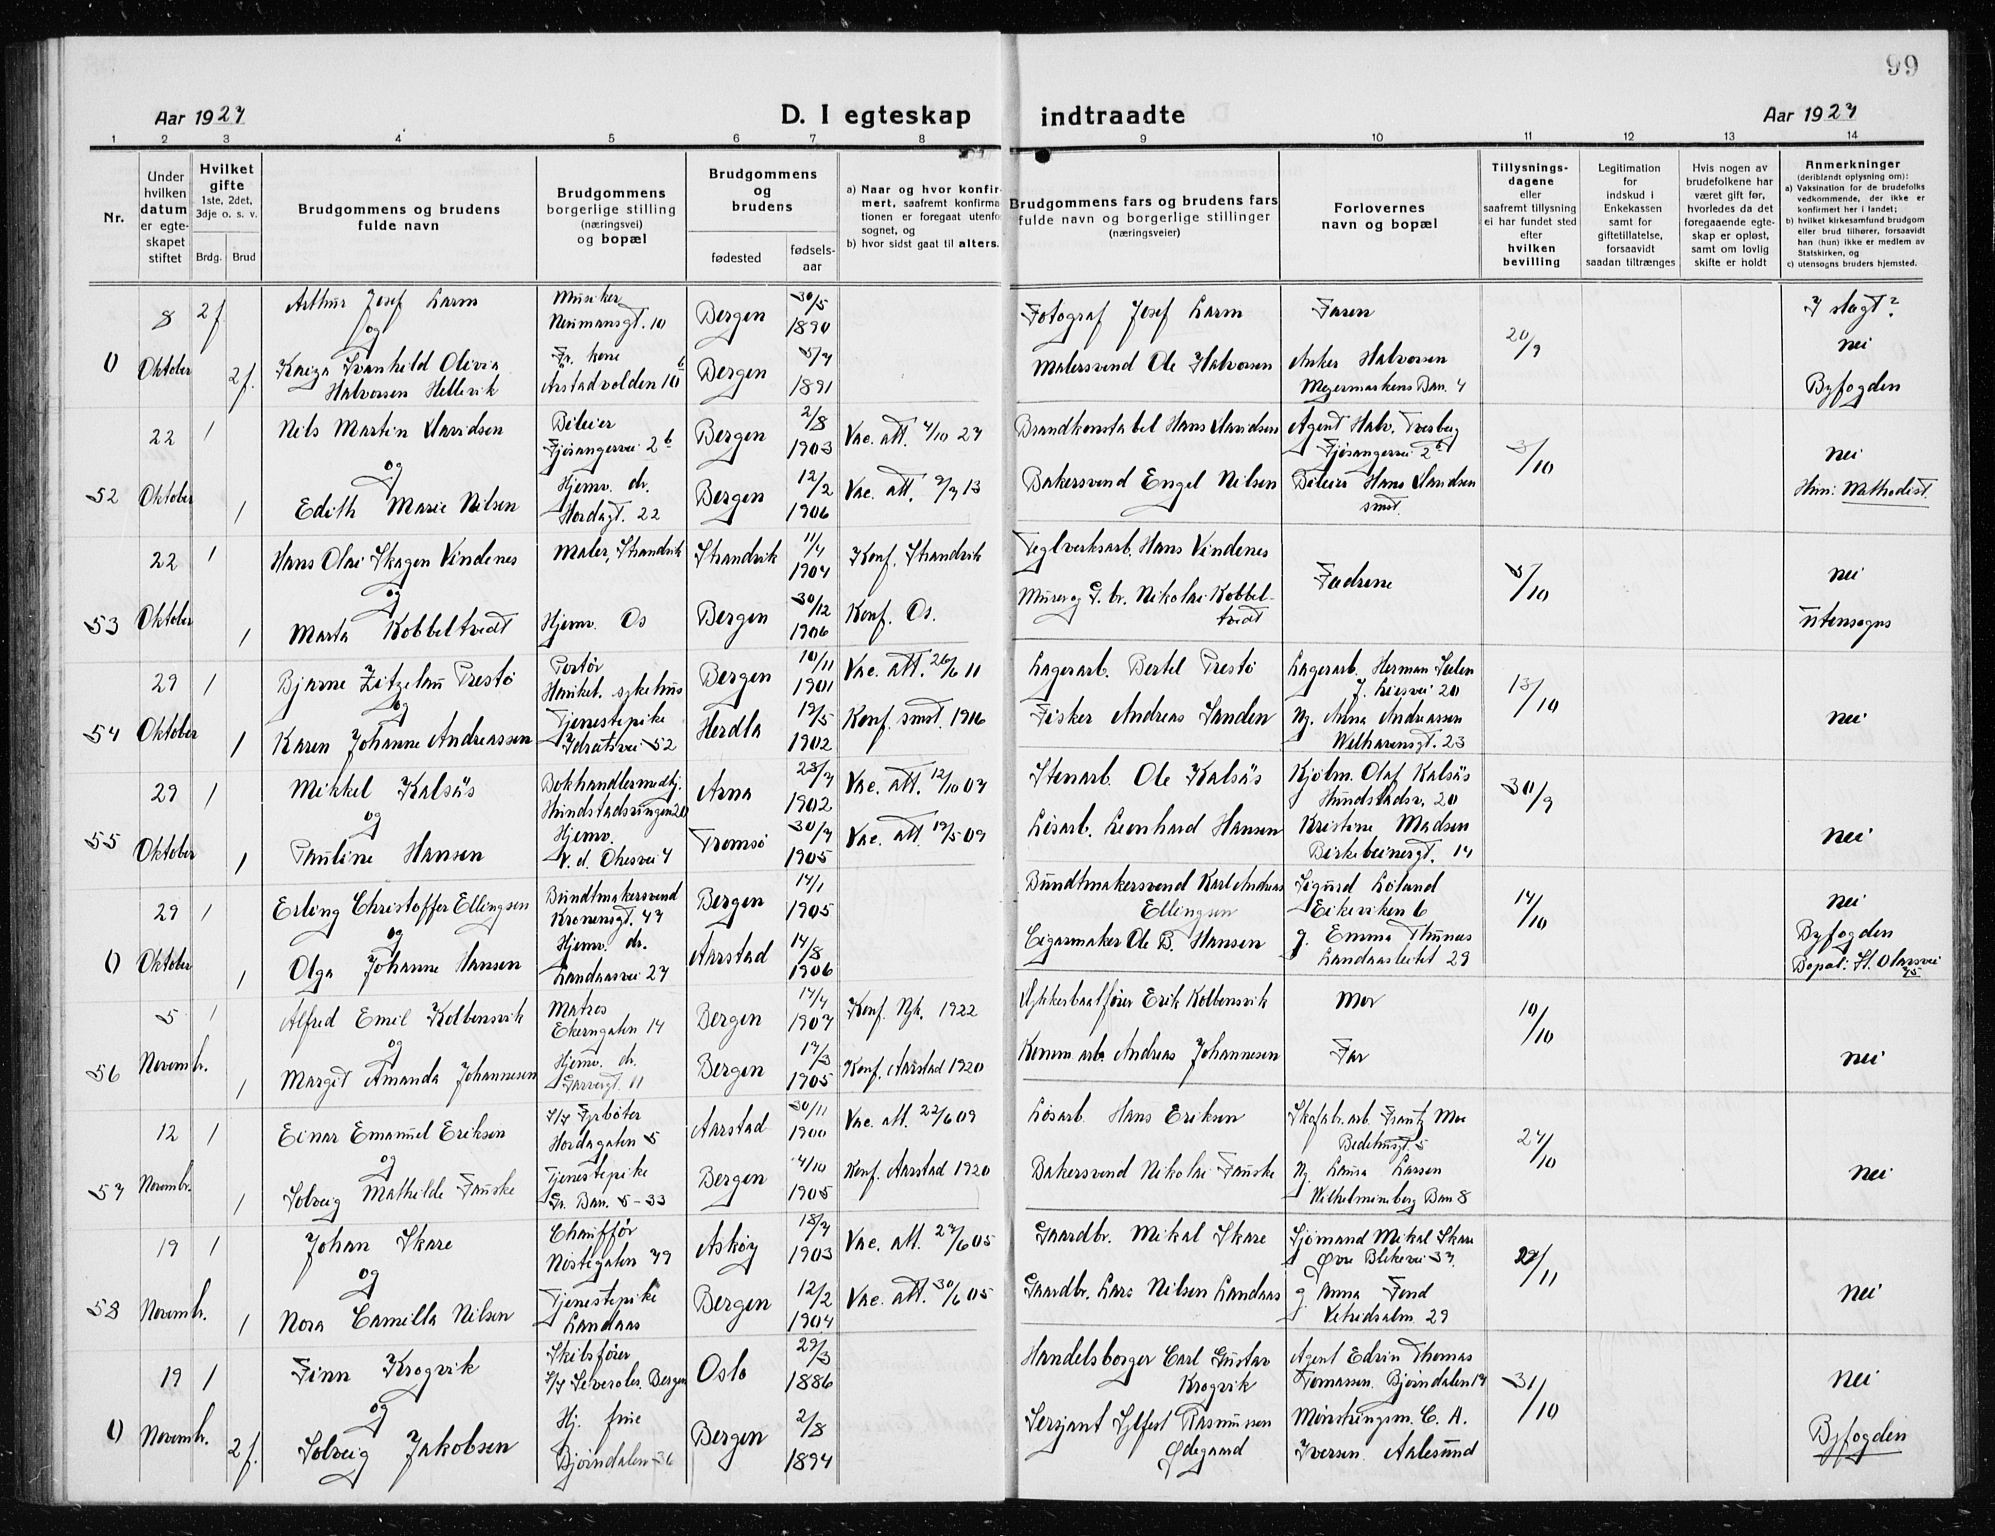 99
Aar 1927
D. I egteskap indtraadte
Aar 1927
1 2 3 4 5 6 7 8 9 10 11 12 13 14
Nr.
Under hvilken datum er egte-skapet stiftet
Hvilket gifte 1ste, 2det, 3dje o. s. v.
Brdg. Brud
Brudgommens og brudens fulde navn
Brudgommens borgerlige stilling (næringsvei) og bopæl
Brudgommens og brudens
fødested
fødsels-aar
a) Naar og hvor konfir-mert, saafremt konfirma-tionen er foregaat utenfo sognet, og
b) hvor sidst gaat til alters.
Brudgommens fars og brudens fars fulde navn og borgerlige stillinger (næringsveier)
Forlovernes navn og bopæl
Tillysnings-dagene eller saafremt tillysning ei har fundet sted efter hvilken bevilling
Legitimation for indskud i Enkekassen samt for giftetillatelse, forsaavidt saadan tiltrænges
Hvis nogen av brudefolkene har været gift før, hvorledes da det foregaaende egte-skap er opløst, samt om lovlig skifte er holdt
Anmerkninger (deriblandt oplysning om):
a) Vaksination for de brudefolks vedkommende, der ikke er konfirmert her i landet;
b) hvilket kirkesamfund brudgom eller brud tilhører, forsaavidt han (hun) ikke er medlem av Statskirken, og
c) utensogns bruders hjemsted.
8 2 f Arthur Josef Larm Musiker Neumansgt. 10 Bergen 30/5 1890 Fotograf Josef Larm Faren 20/9 I slagt? nei
og
0 Oktober 2 f. Kaiza Svanhild Olivia Halvorsen Hellevik Fr. kone Arstadvolden 10 b Bergen 5/7 1891 Malersvend Ole Halvorsen Anker Halvorsen Meyermarkens Ban. 4 Byfogden
22 1 Nils Martin Davidsen Bileier Fjøsangervei 2 b Bergen 2/8 1903 Vac. att. 7/10 27 Brandkonstabel Hans Davidsen Agent Halv. Tverberg Fjøsangervei 2 b 3/10 nei
og
52 Oktober 1 Edith Marie Nilsen Hjemv. dr. Hordagt. 22 Bergen 12/2 1906 Vac. att. 9/7 13 Bakersvend Engel Nilsen Bileier Hans Davidsen smst. Hun: Methodist.
22 1 Hans Olai Skagen Vindenes Maler, Strandvik Strandvik 11/7 1904 Konf. Strandvik Teglverksarb. Hans Vindenes Fadrene 5/10 nei
og
53 Oktober 1 Marta Kobbeltvedt Hjemv. Os Bergen 30/12 1906 Konf. Os. Murer og G. br. Nikolai Kobbel-tvedt utensogns
29 1 Bjarne Zitzelau Prestø Portør Haukel. sykehus Bergen 10/11 1901 Vac. att. 26/6 11 Lagerarb. Bertel Prestø Lagerarb. Herman Selen J. Liesvei 20 13/10
og
54 Oktober 1 Karen Johanne Andreassen Tjenestepike Idrætsvei 52 Herdla 19/5 1902 Konf. smst. 1916 Fisker Andreas Sanden Ug. Anna Andreassen Welhavensgt. 23 nei
29 1 Mikkel Kalsås Bokhandlermedhj. Hundstadsvingen 20 Arna 23/7 1902 Vac. att. 12/10 07 Stenarb. Ole Kalsås Kjølm. Olaf Kalsås Hundstadsv. 20 30/9
og
55 Oktober 1 Pauline Hansen Hjemv. V. d. Ohesvei 7 Tromsø 30/7 1905 Vac. att 19/5 09 Løsarb. Leonhard Hansen Kristine Madsen Birkebeinergt. 14 nei
29 1 Erling Christoffer Ellingsen Bundtmakersvend Kronengt. 47 Bergen 14/1 1905 Bundtmakersvend Karl Andreas Ellingsen Sigurd Løland Eikeviken 6 14/10 nei
og
0 Oktober 1 Olga Johanne Hansen Hjemv. dr. Landaasvei 27 Aarstad 14/8 1906 Cigarmaker Ole B. Hansen g. Emma Thunæs Landaasleitet 29 Byfogden Bopæl: St. Olavsvei 75
5 1 Alfred Emil Kolbensvik Matros Ekerngaten 14 Bergen 17/7 1907 Konf. Nyk. 1922 Dykkerbaatfører Erik Kolbensvik Mor 10/10
og
56 Novembr. 1 Margit Amanda Johannesen Hjemv. dr. Garvergt. 11 Bergen 17/3 1905 Konf. Aarstad 1920 Komm. arb. Andreas Johannesen Far nei
12 1 Einar Emanuel Eriksen F/f Fyrbøter Hordagaten 5 Aarstad 30/11 1900 Vac. att. 22/6 09 Løsarb. Hans Eriksen Skofabr. arb. Frantz Moe Bedehusgt. 5 27/10
og
57 Novembr. 1 Solveig Mathilde Fauske Tjenestepike Gr. Ban. 5-33 Bergen 4/10 1905 Konf. Aarstad 1920 Bakersvend Nikolai Fauske Ug. Laura Larsen Wilhelmineborg Ban 8 nei
19 1 Johan Skare Chauffør Nøstegaten 79 Askøy 18/7 1903 Vac. att. 27/6 05 Gaardbr. Mikal Skare Sjømand Mikal Skare Øvre Blekevei 37. 29/11
og
58 Novembr. 1 Nora Camilla Nilsen Tjenestepike Landaas Bergen 12/2 1904 Vac. att. 30/6 05 Gaardbr. Lars Nilsen Landaas g Anna Fond Vetridsalm. 29 nei
19 1 Finn Krogvik Skibsfører Bergen Oslo 29/3 1886 Handelsborger Carl Gustav Krogvik Agent Edvin Thomas Tomassen Bjørndalen 19 31/10 nei
og
0 Novembr. 2 f. Solveig Jakobsen Hj. frue Bjørndalen 36 Bergen 2/8 1894 Sersjant Sylfest Rasmussen Ødegaard Mønstringsm. C. A. Iversen Aalesund Byfogden